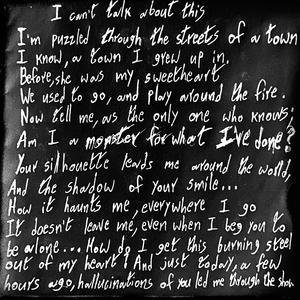 I can't talk about this
I'm puzzled through the streets of a town
I know, a town I grew up in.
Before, she was my sweetheart
We used to go, and play around the fire.
Now tell me, as the only one who knows;
Am I a monster for what I've done?
Your silhouette leads me around the world,
And the shadow of your smile...
How it haunts me, everywhere I go
It doesn't leave me, even when I beg you to
be alone... How do I get this burning steel
out of my heart? And just today, a few
hours ago, hallucinations of you led me through the